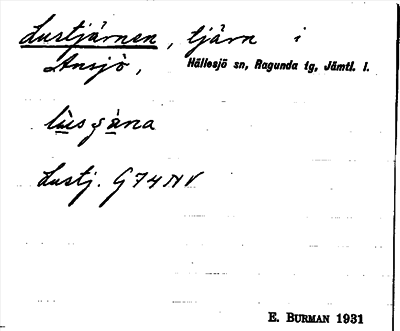 Lustjärnen, tjärn i
Ansjö, Hällesjö sn, Ragunda tg, Jämtl. l.
Lustj. G74NV
E. BURMAN 1931